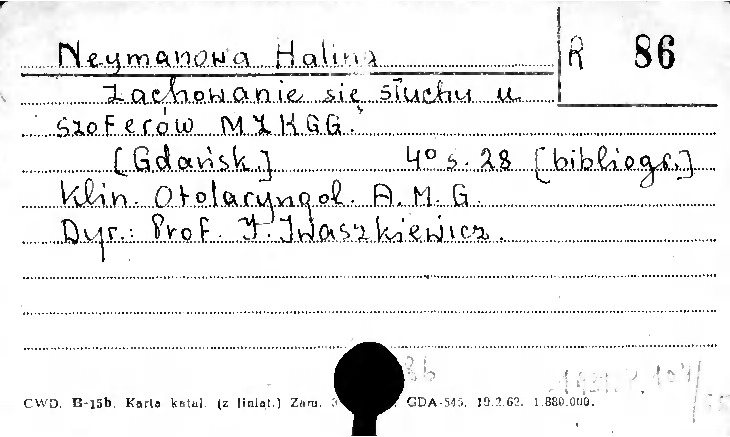 Neymanowa Halina
R 86
Zachowanie się słuchu u
szoferów MZKGG.
[Gdańsk.] 4° s. 28 [bibliogr.]
Klin. Otolaryngol. A. M. G.
Dyr.: Prof. J. Iwaszkiewicz.
CWD. B-15b. Karta katal. (z liniat.) Zam. GDA-545. 19.2.62. 1.880.000.